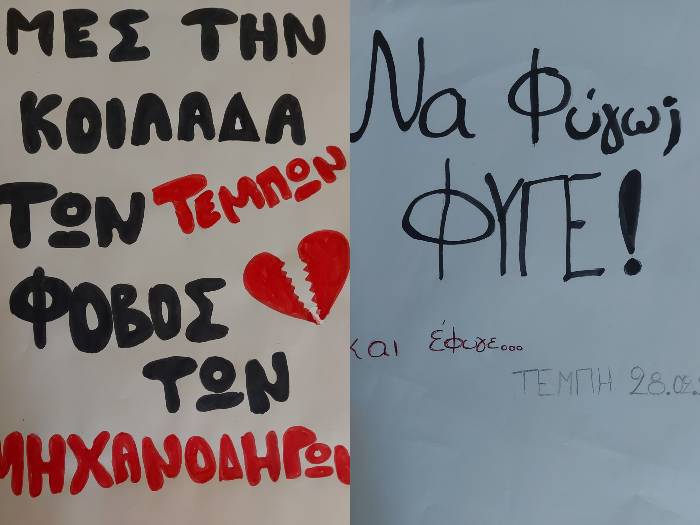 ΜΕΣ ΤΗΝ
ΚΟΙΛΑΔΑ
ΤΩΝ ΤΕΜΠΩΝ
ΦΟΒΟΣ
ΤΩΝ
ΜΗΧΑΝΟΔΗΓΩΝ
Να Φύγω;
ΦΥΓΕ!
και έφυγε...
ΤΕΜΠΗ 28.02.